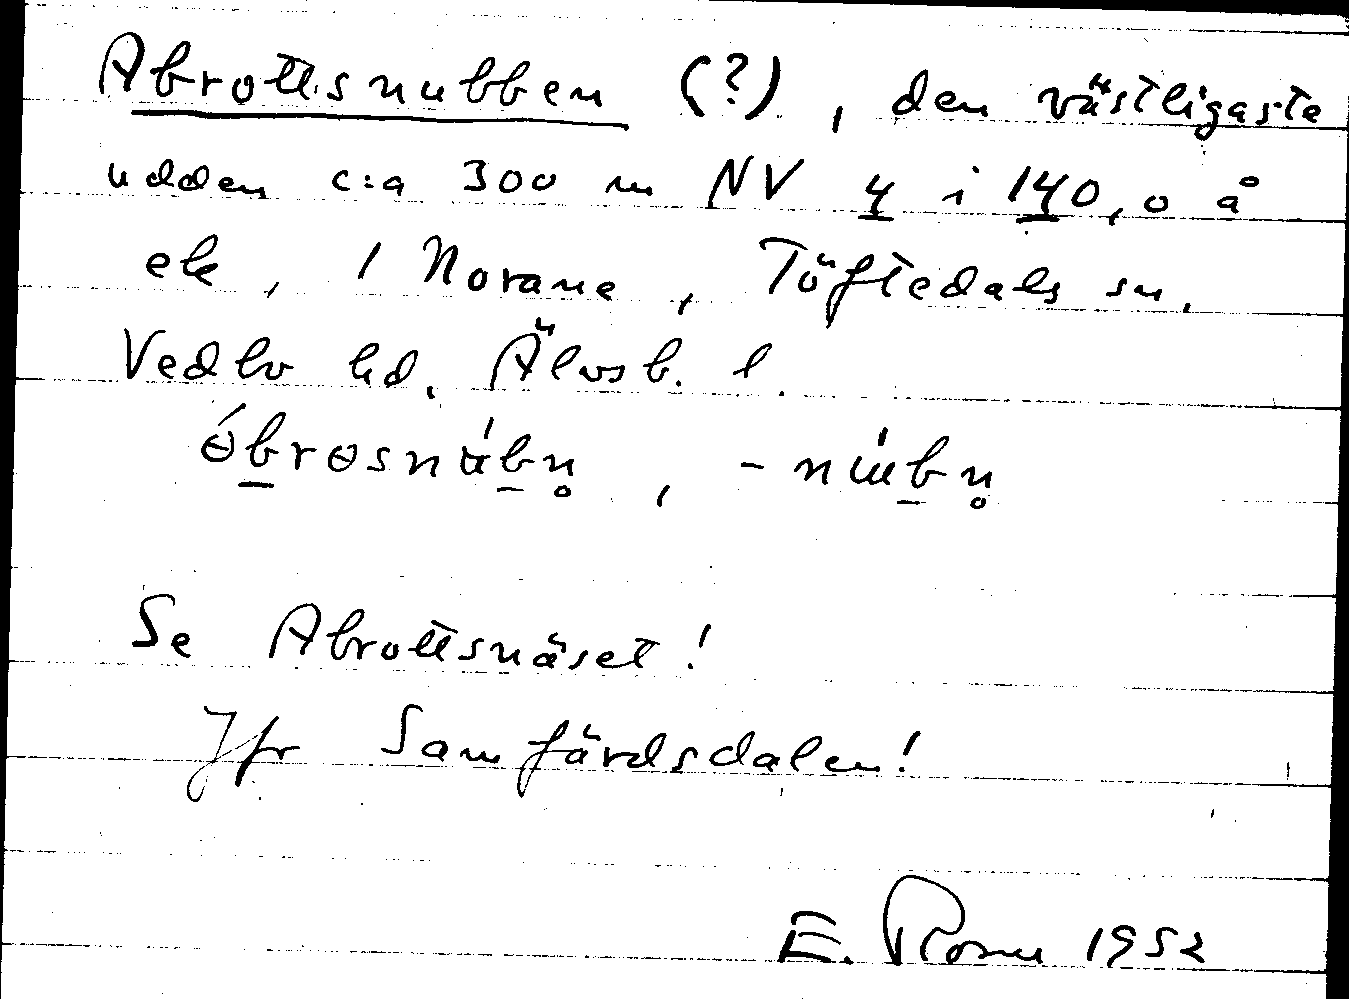 Abrottsnubben (?), den västligaste
udden c:a 300 m NV 4 i 140,0 å
ek, 1 Norane, Töftedals sn.
Vedbo hd. Älvsb. l.
óbrɵsnúbn̥, -nɯ́bn̥
Se Abrottsnäset!
Jfr Samfärdsdalen!
E. 1952